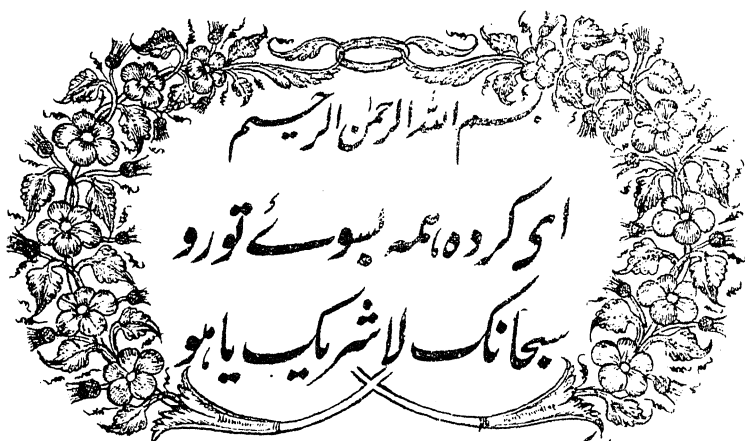 بسم الله الرحمن الرحیم
ای کرده همه بسوئے تو رو
سبحانک لا شریک یا هو